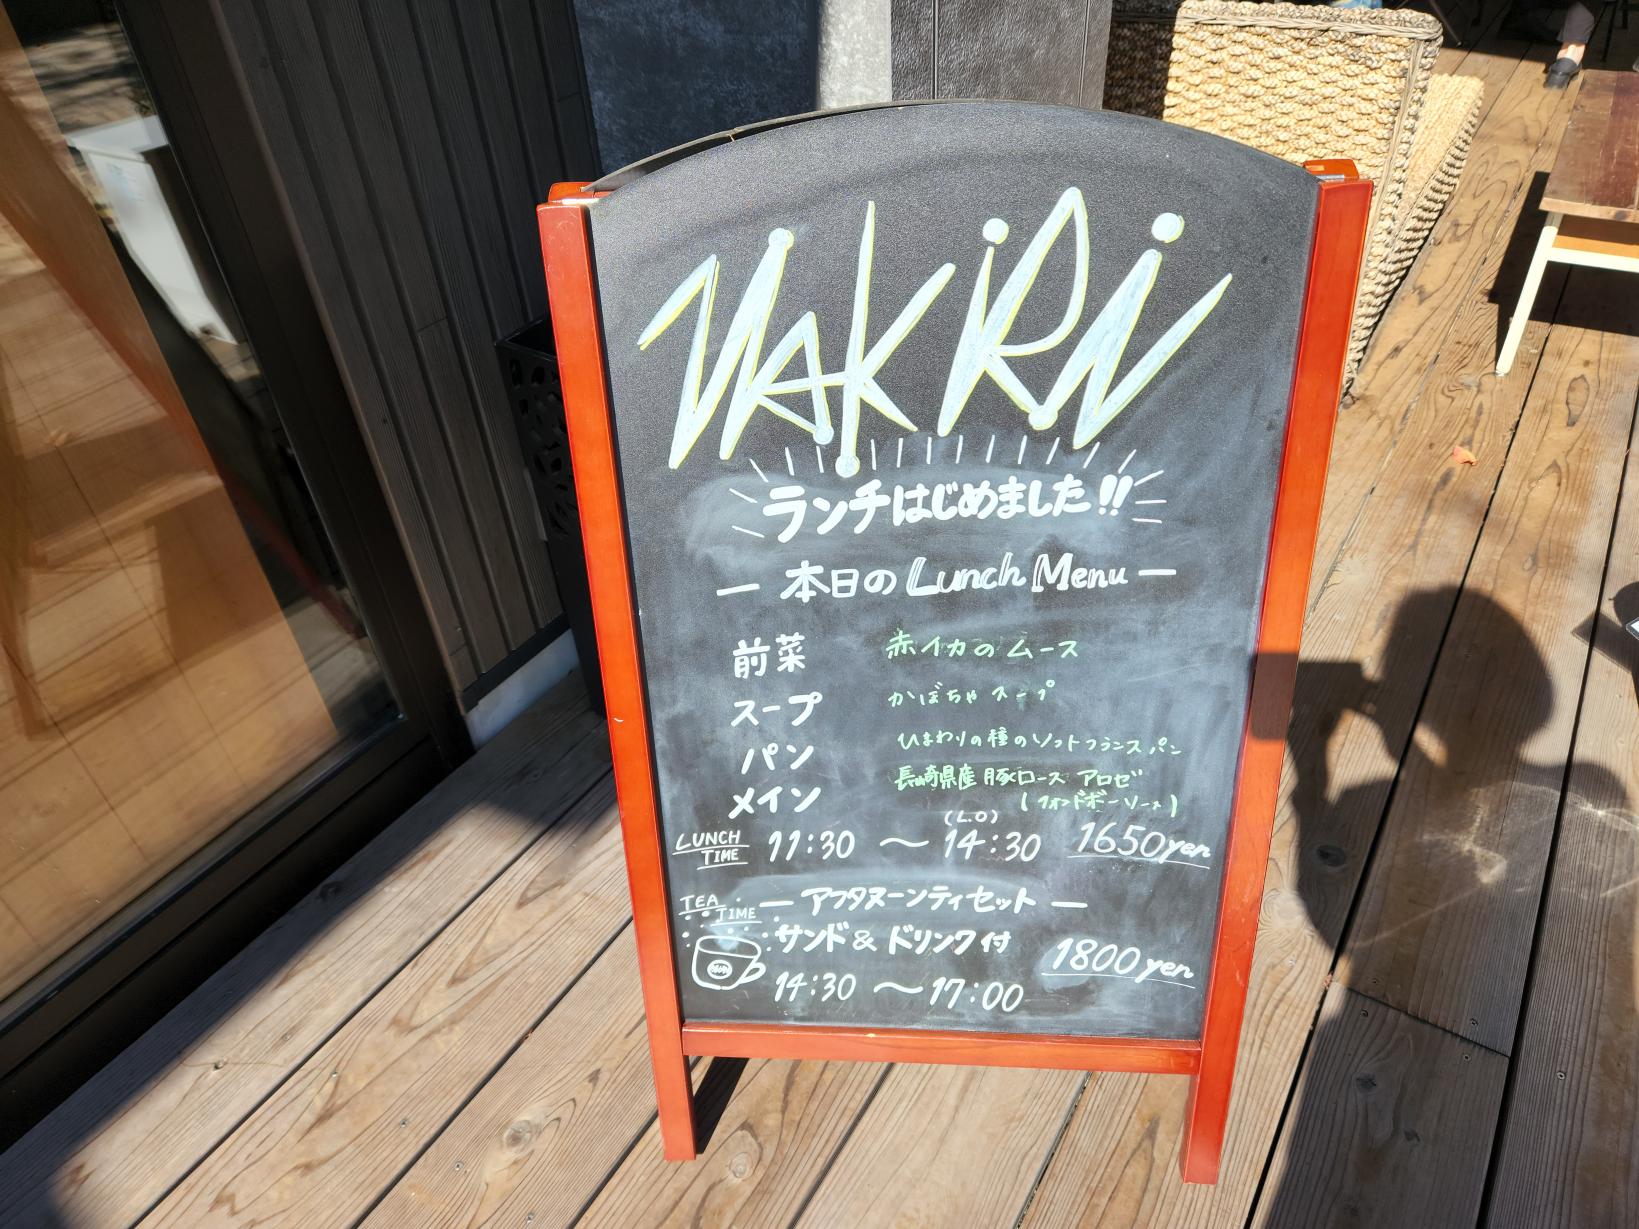 ランチはじめました!!
— 本日の Lunch Menu —
前菜 赤イカのムース
スープ かぼちゃスープ
パン ひまわりの種のソフトフランスパン
メイン 長崎県産豚ロース アロゼ
(L.O)
LUNCH TIME 11:30 〜 14:30 1650yen
TEA TIME — アフタヌーンティセット —
サンド & ドリンク付 1800yen
14:30 〜 17:00